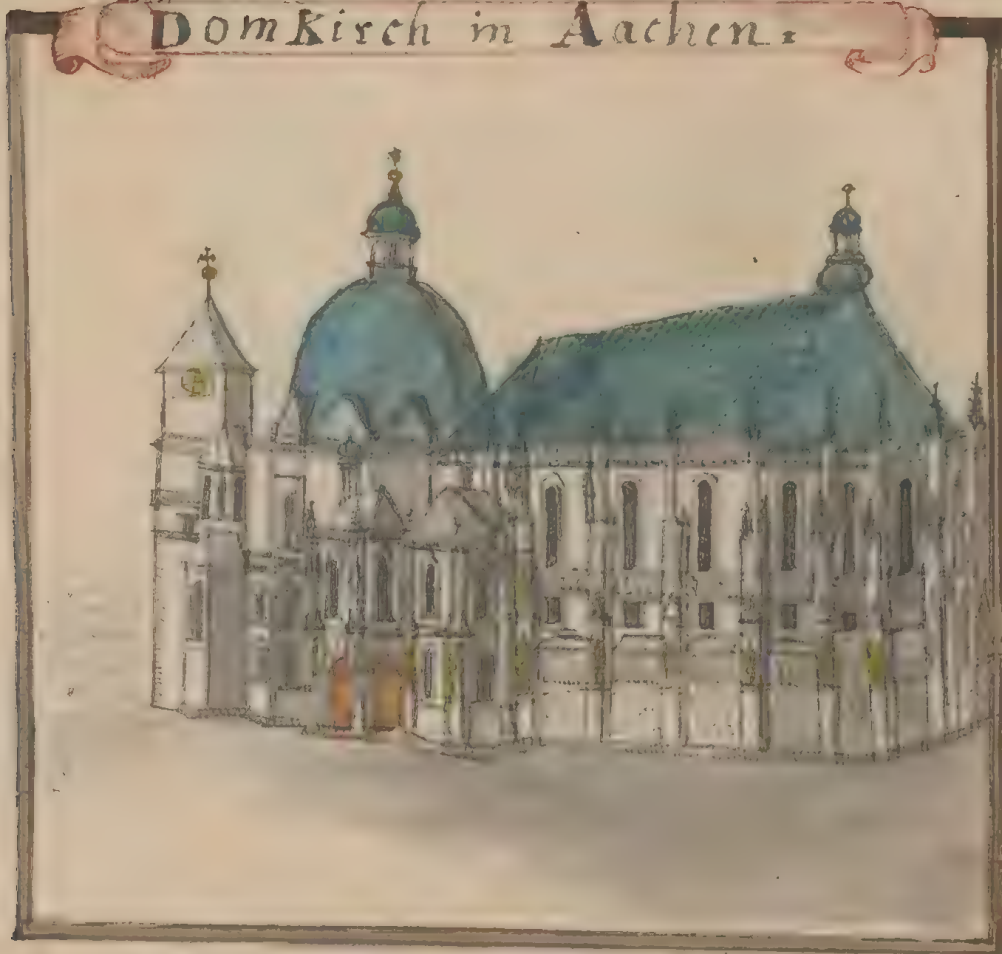 Dom Kirch in Aachen.